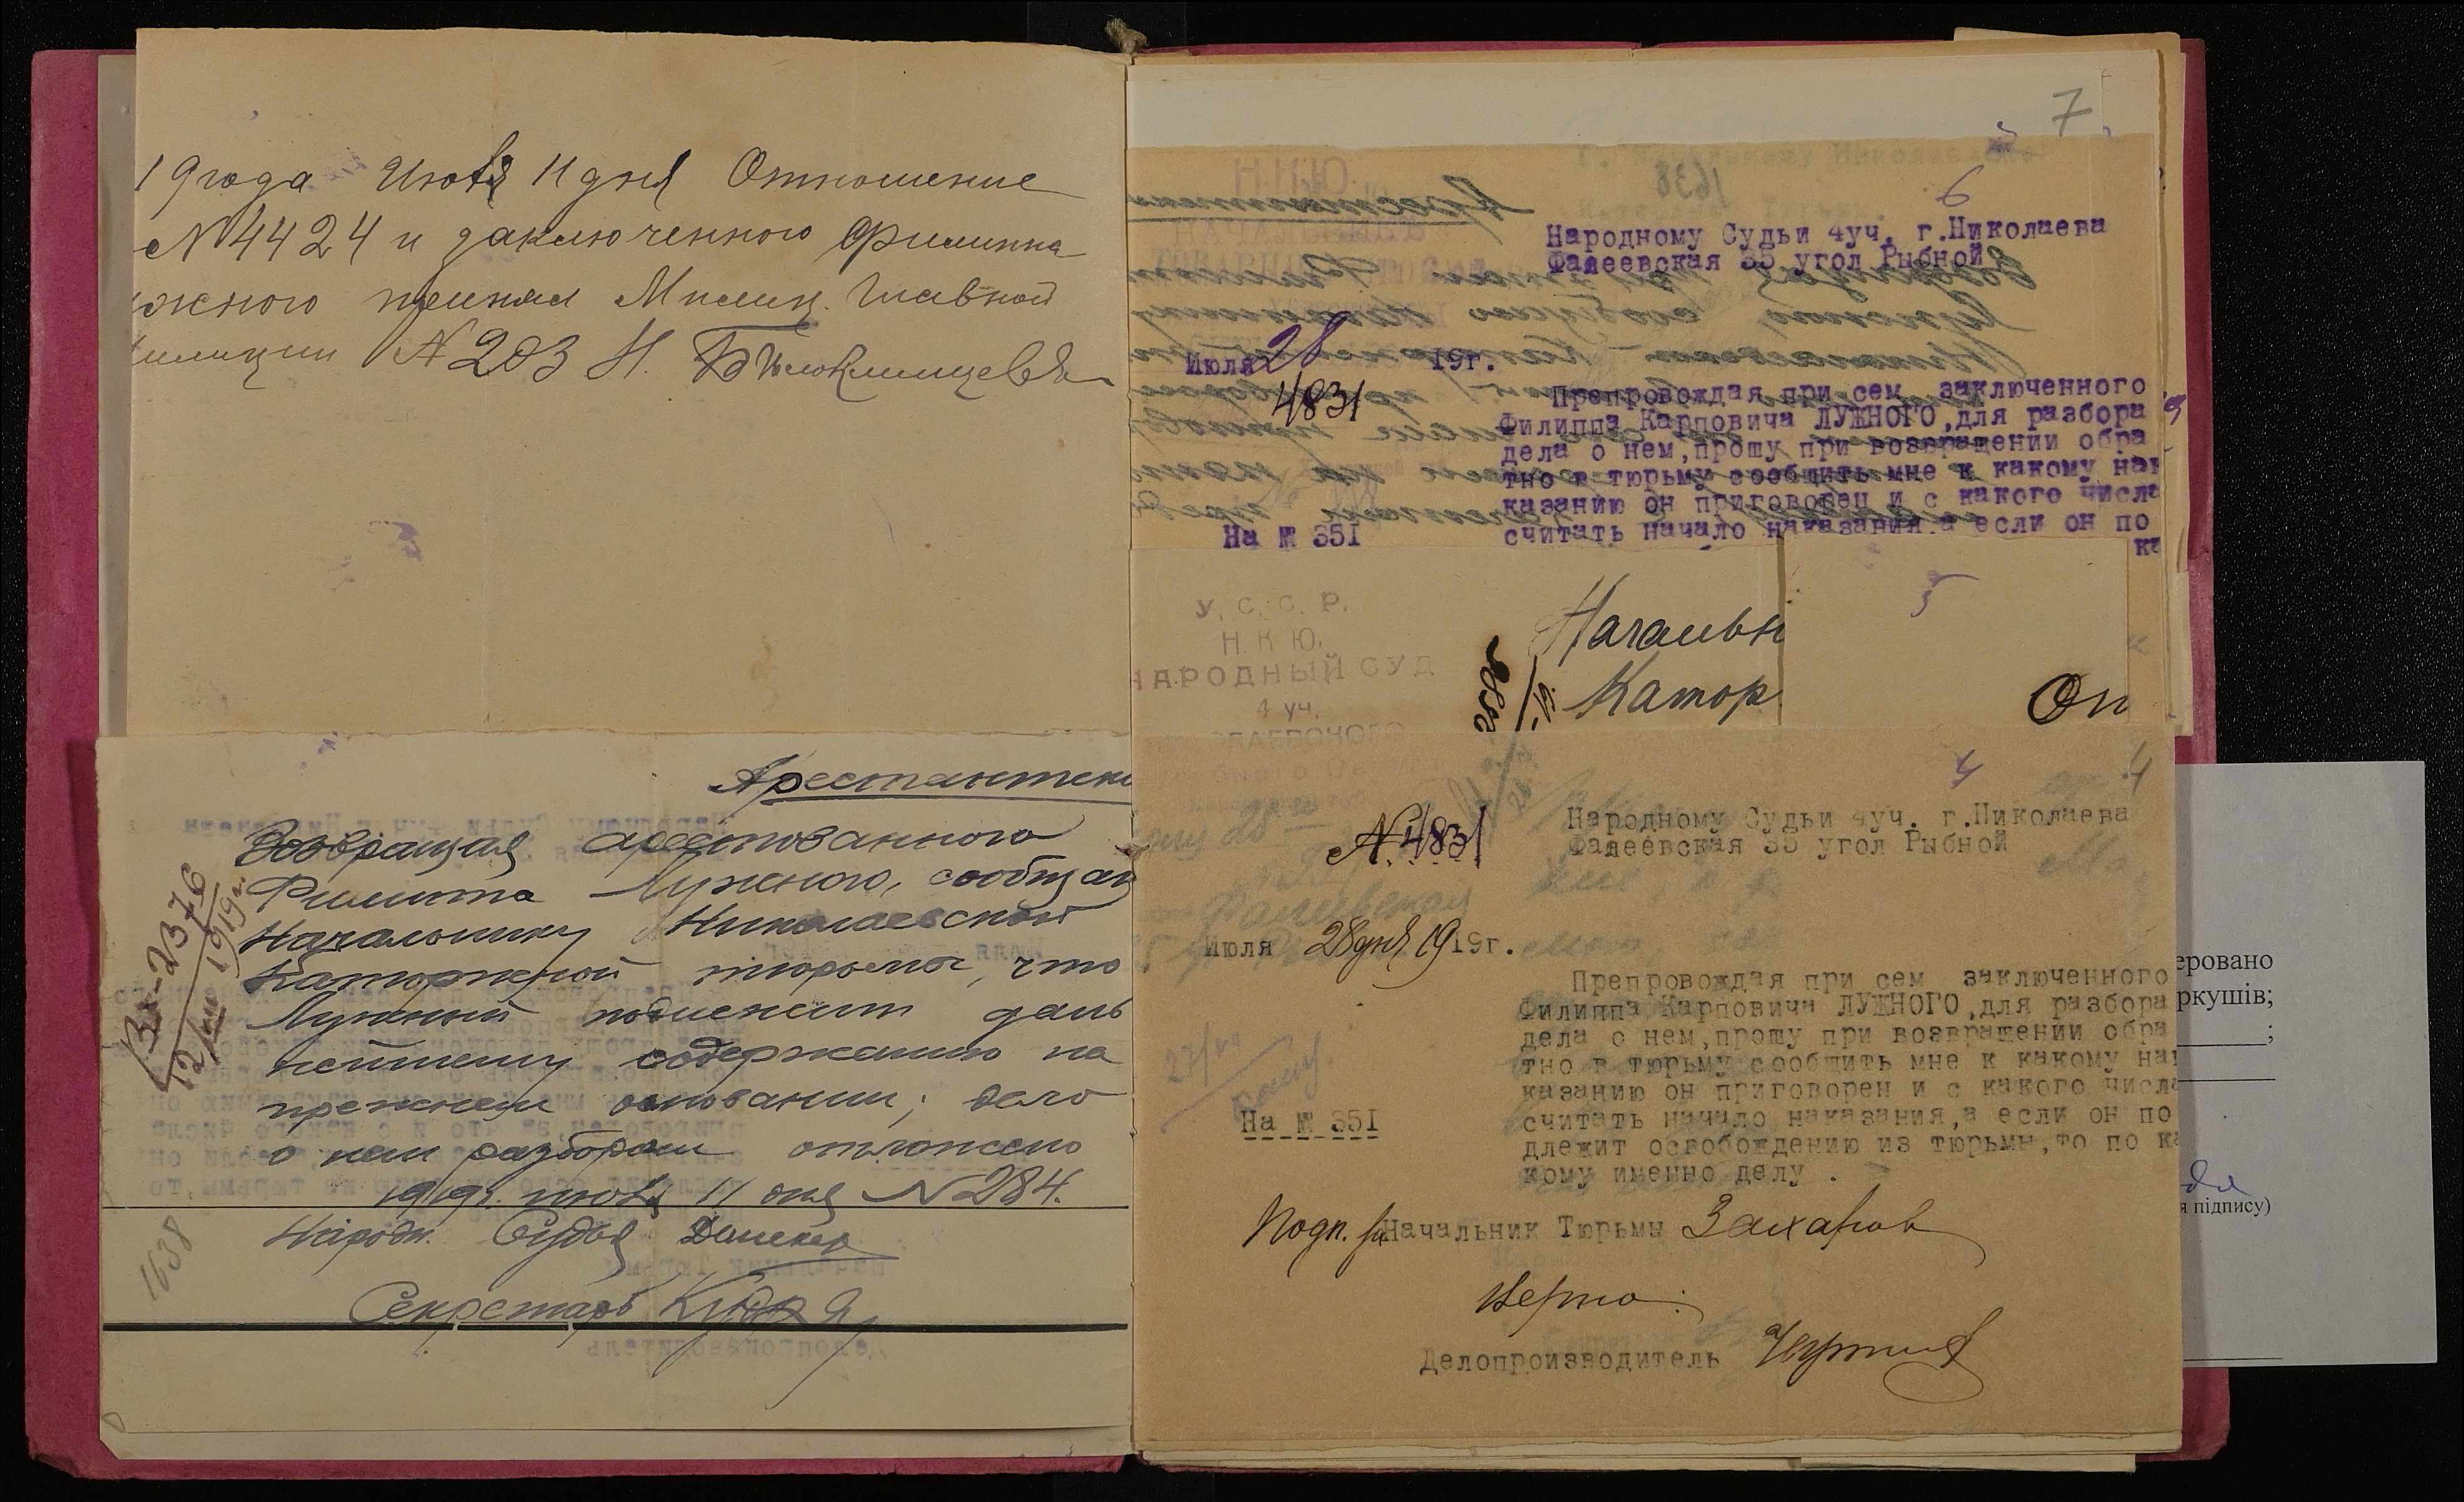 19 года Июля 11 дня Отношение
№4424 и заключенного Филиппа
жного принял Милиц. Главной
илиции №203 Н.
Арестантск
Возвращая арестованного
Филиппа Лужного, сообщаю
Начальнику Николаевской
Каторжной тюрьмы, что
Лужный подлежит даль
нейшему содержанию на
прежнем основании; дело
о нем разбором отложено
1919г. июля 11 дня №284.
Народн. Судья
Секретарь
Вх-2376
12/VII 1919г.
1638
7
6
Народному Судьи 4уч. г.Николаева
Фалеевская 35 угол Рыбной
Июля 28 19г.
4831
Препровождая при сем заключенного
Филиппа Карповича ЛУЖНОГО,для разбора
дела о нем,прошу при возвращении обра
тно в тюрьму сообщить мне к какому на
казанию он приговорен и с какого числа
считать начало наказания а если он по
На № 35I
ка
У. С. С. Р.
Н. К. Ю.
НАРОДНЫЙ СУД
4 уч.
Начальн
Катор
5
От
4
4
№4831
Народному Судьи 4уч. г.Николаева
Фалеевская 35 угол Рыбной
Июля 28 дня 1919г.
Препровождая при сем заключенного
Филиппа Карповича ЛУЖНОГО,для разбора
дела о нем,прошу при возвращении обра
тно в тюрьму сообщить мне к какому на
казанию он приговорен и с какого числа
считать начало наказания,а если он по
длежит освобождению из тюрьмы,то по ка
кому именно делу .
27/VII
На № 35I
Подп. Начальник Тюрьмы Захаров
Верно:
Делопроизводитель
еровано
ркушів;
;
я підпису)